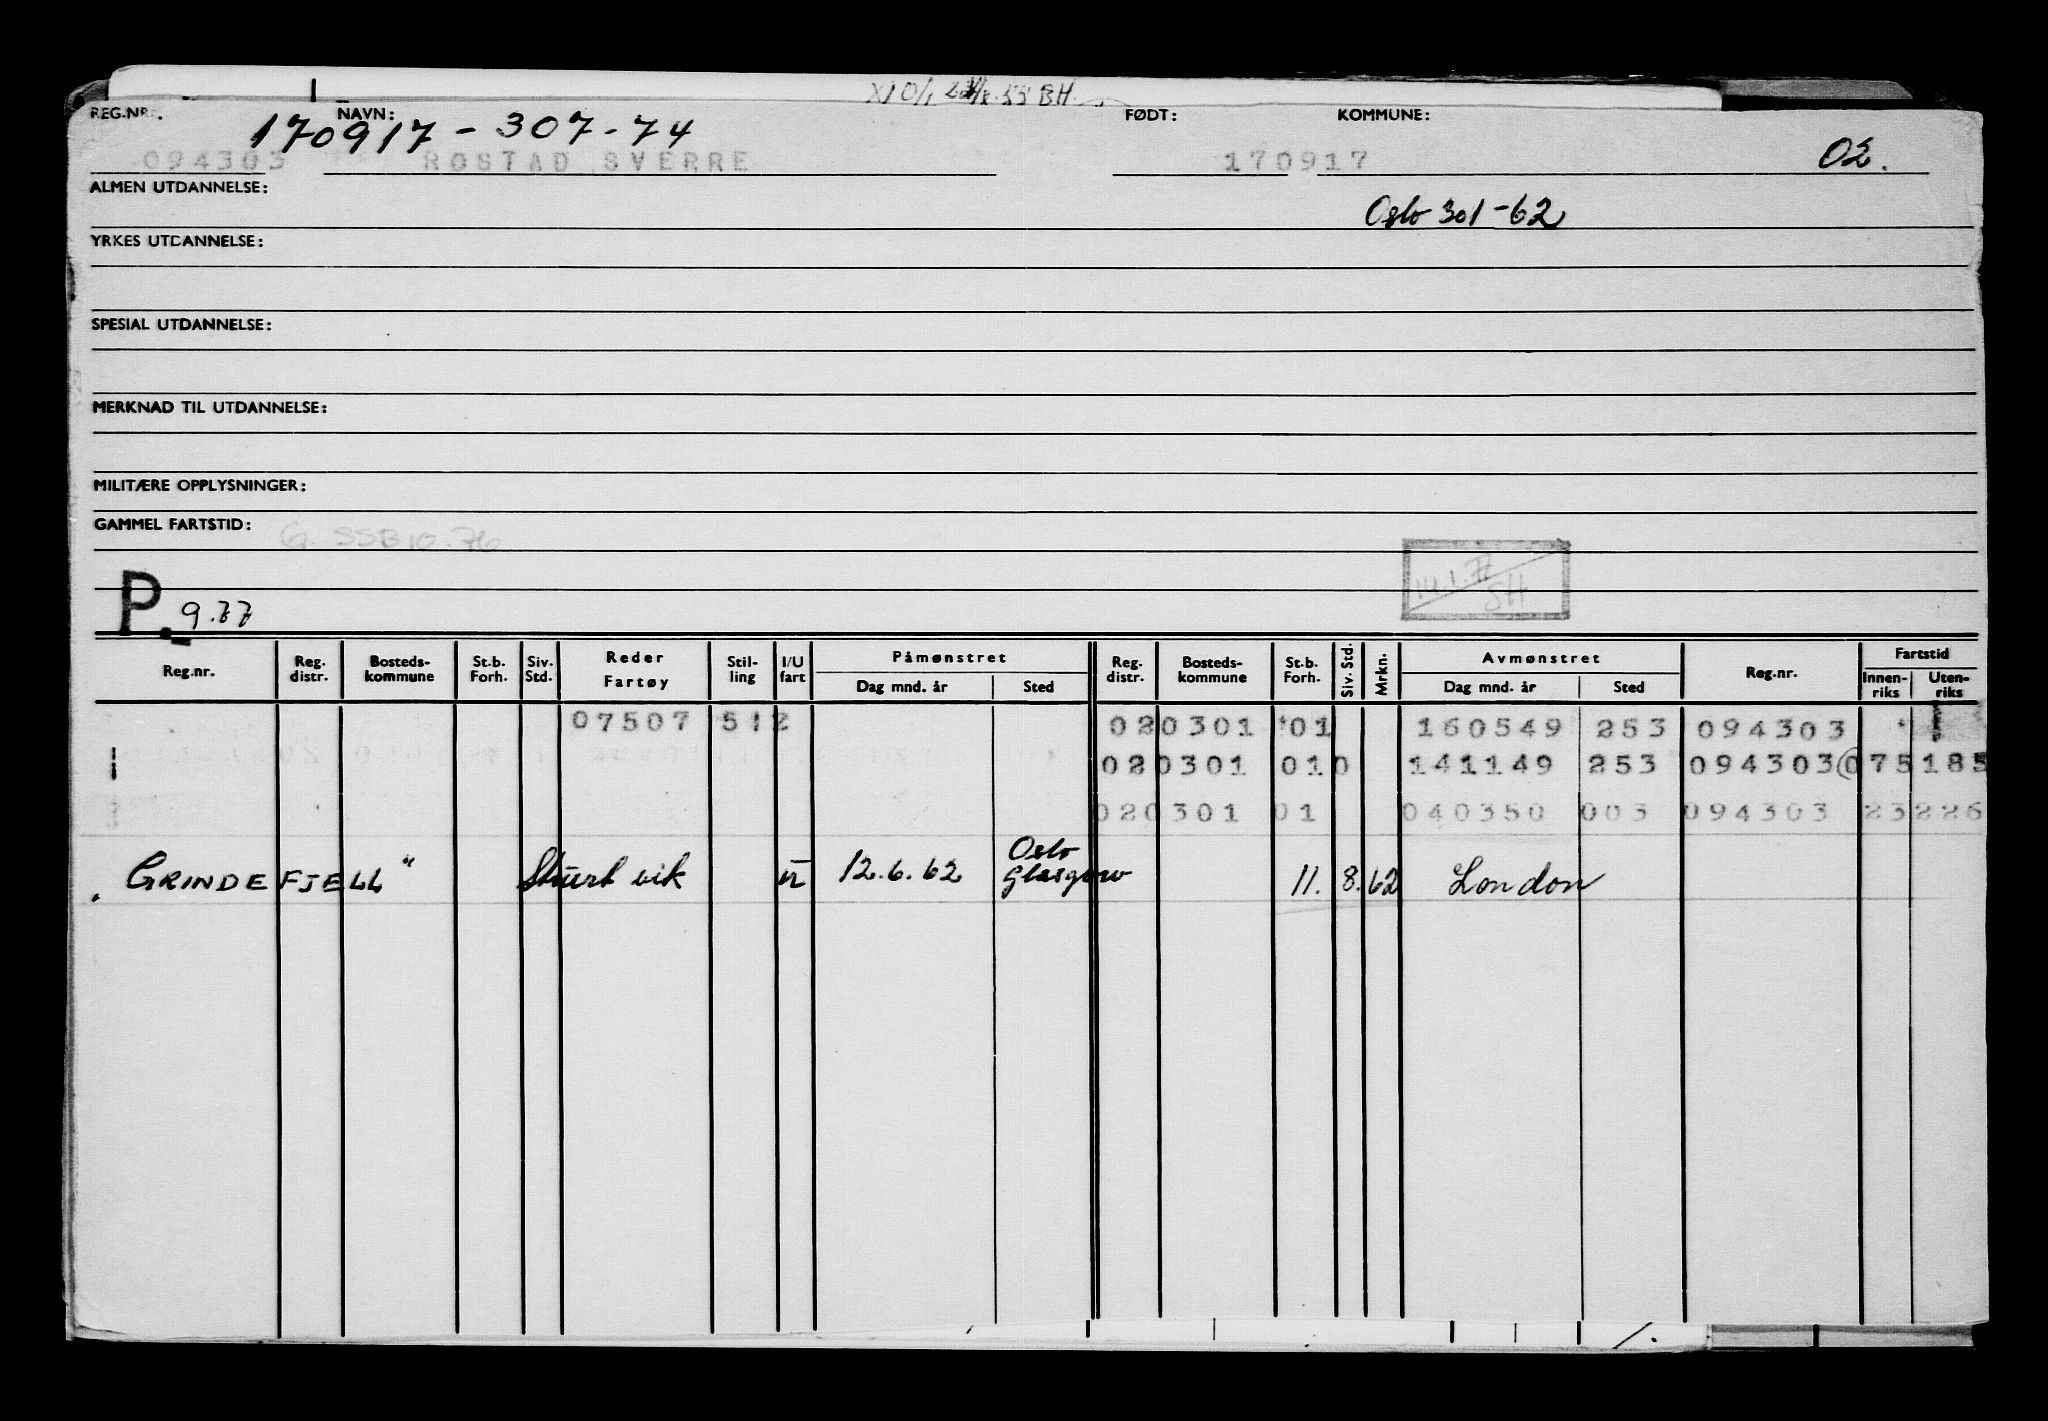 REG.NR. NAVN: FØDT: KOMMUNE:
170917-307-74
094303 ROSTAD SVERRE 170917 02.
ALMEN UTDANNELSE:
Oslo 301-62
YRKES UTDANNELSE:
SPESIAL UTDANNELSE:
MERKNAD TIL UTDANNELSE:
MILITÆRE OPPLYSNINGER:
GAMMEL FARTSTID: G. SSB 10.76
SH
P. 9.77
Reg.nr. Reg. distr. Bosteds-kommune St.b. Forh. Siv. Std. Reder Fartøy Stil-ling I/U fart Påmønstret Dag mnd. år Sted Reg. distr. Bosteds-kommune St.b. Forh. Siv. Std. Mrkn. Avmønstret Dag mnd. år Sted Reg.nr. Fartstid Innen-riks Uten-riks
07507 512 020301 01 160549 253 094303
020301 010 141149 253 094303 075 185
020301 01 040350 003 094303 23 226
Oslo
„GRINDEFJELL" vik 12.6.62 Glasgow 11. 8. 62 London